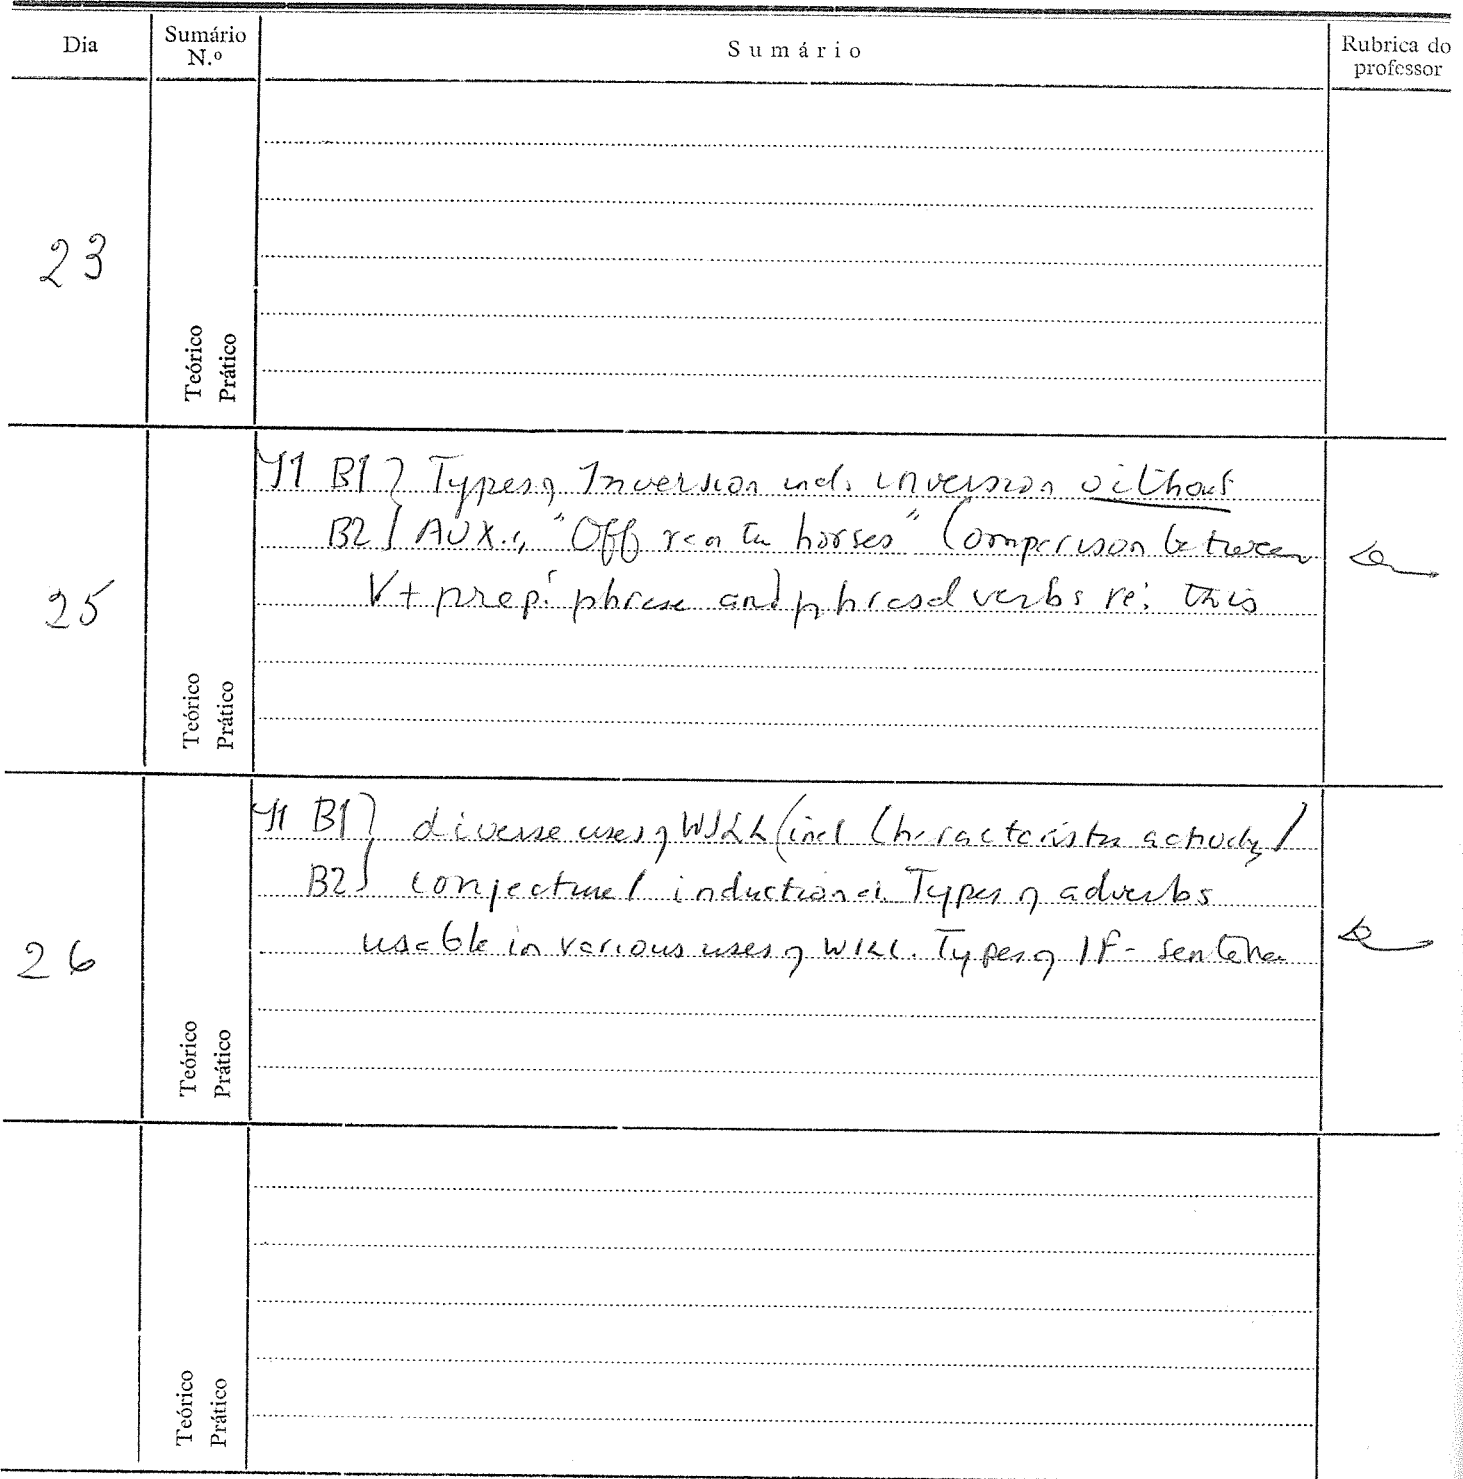 Dia
Sumário N.º
Sumário
Rubrica do professor
23
Teórico
Prático
25
Y1 B1 } Types of Inversion incl. inversion without
B2 } AUX., "Off ran the horses" Comparison between
V + prep. phrase and phrasal verbs re: this
Teórico
Prático
26
Y1 B1 } diverse uses of WILL (incl characteristic activity /
B2 } conjecture / induction. Types of adverbs
usable in various uses of WILL. Types of IF- sentence
Teórico
Prático
Teórico
Prático